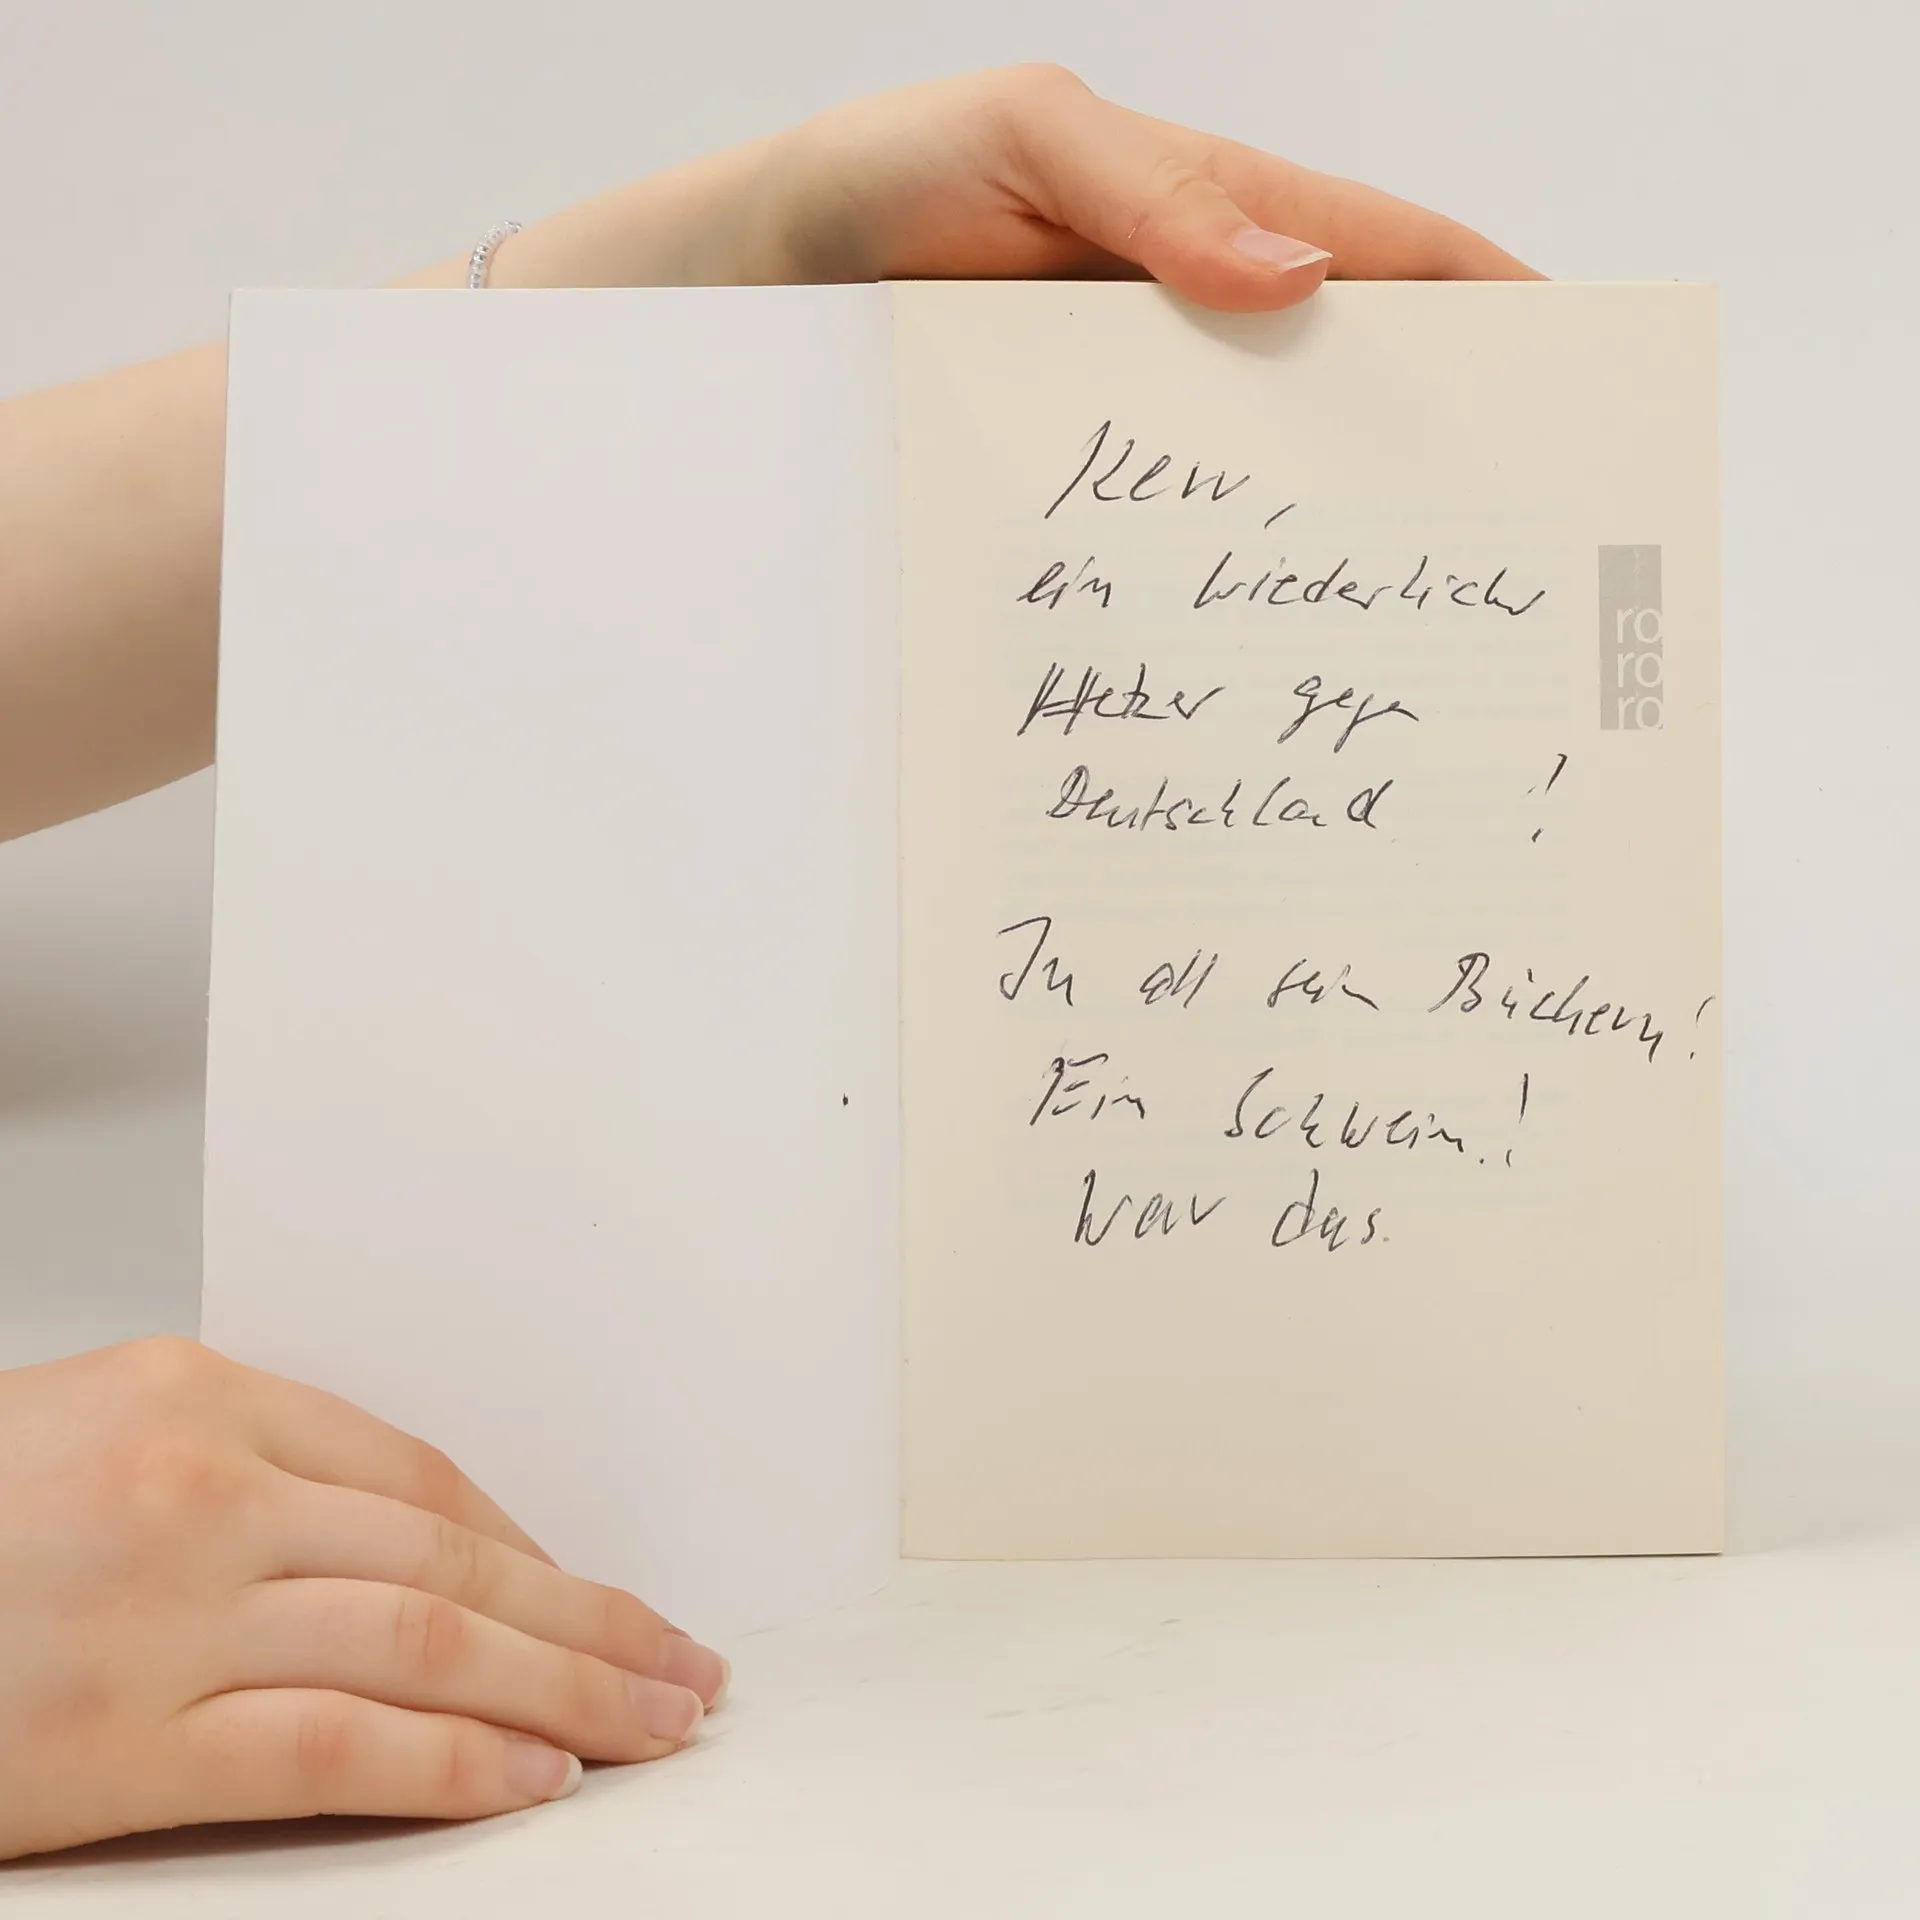 Kerr,
ein wiederlicher
Hetzer gegen
Deutschland !
In all seinen Büchern!
Ein Schwein.!
War das.
ro
ro
ro